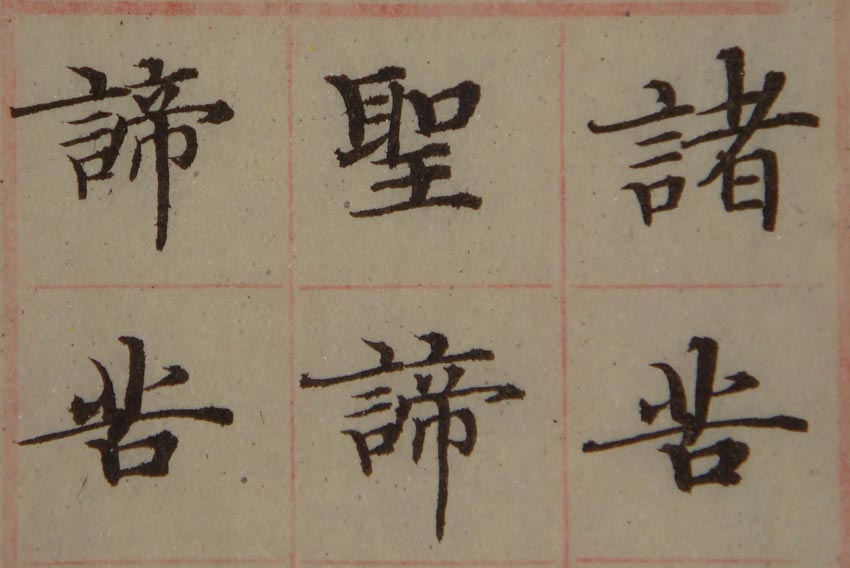 諸苦
聖諦
諦苦